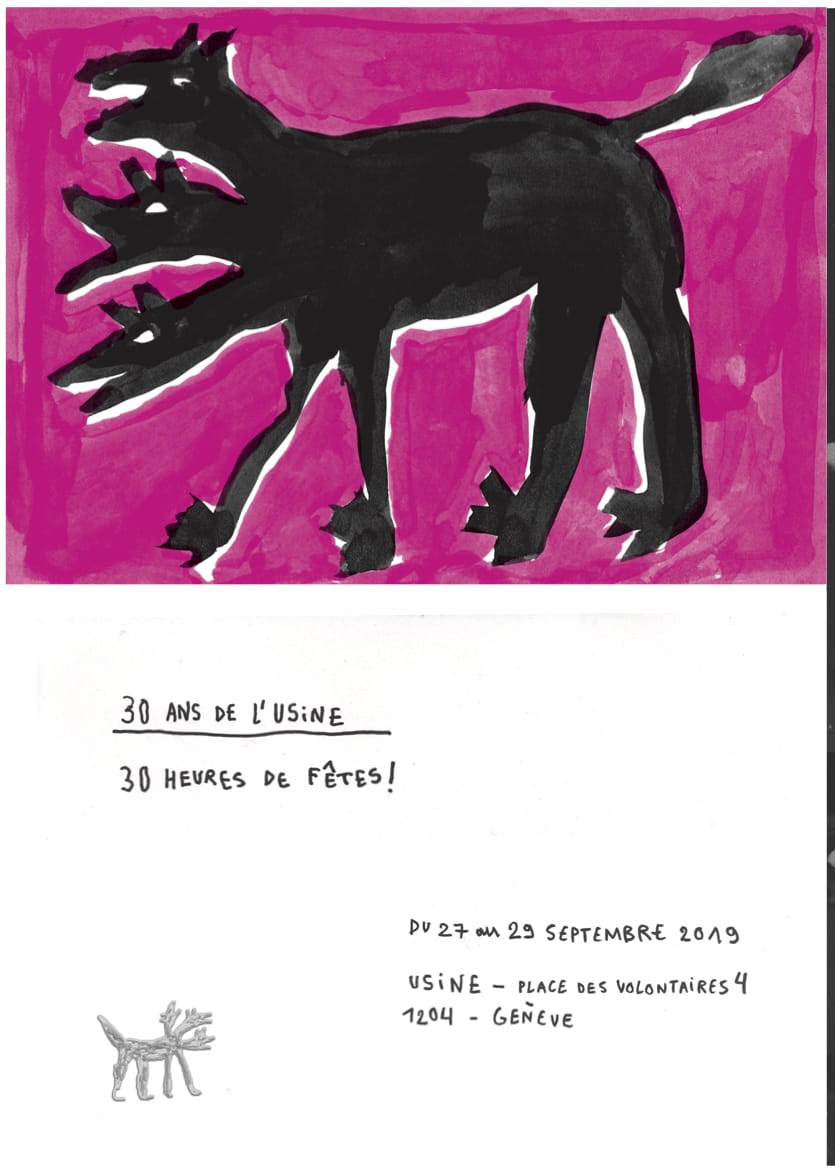 30 ANS DE L'USiNE
30 HEURES DE FÊTES!
DU 27 au 29 SEPTEMBRE 2019
USiNE – PLACE DES VOLONTAiRES 4
1204 - GENÈVE